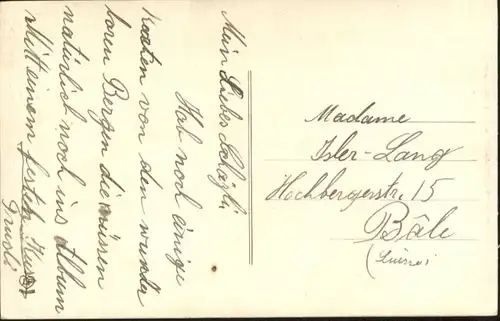 Mein Liebes Schägli
Hab noch einige
Karten von den wunder
baren Bergen die müssen
natürlich noch ins Album
Mit einem festen Kuss
Grussli
Madame
Isler-Lang
Hochbergerstr. 15
Bâle
(Suisse)